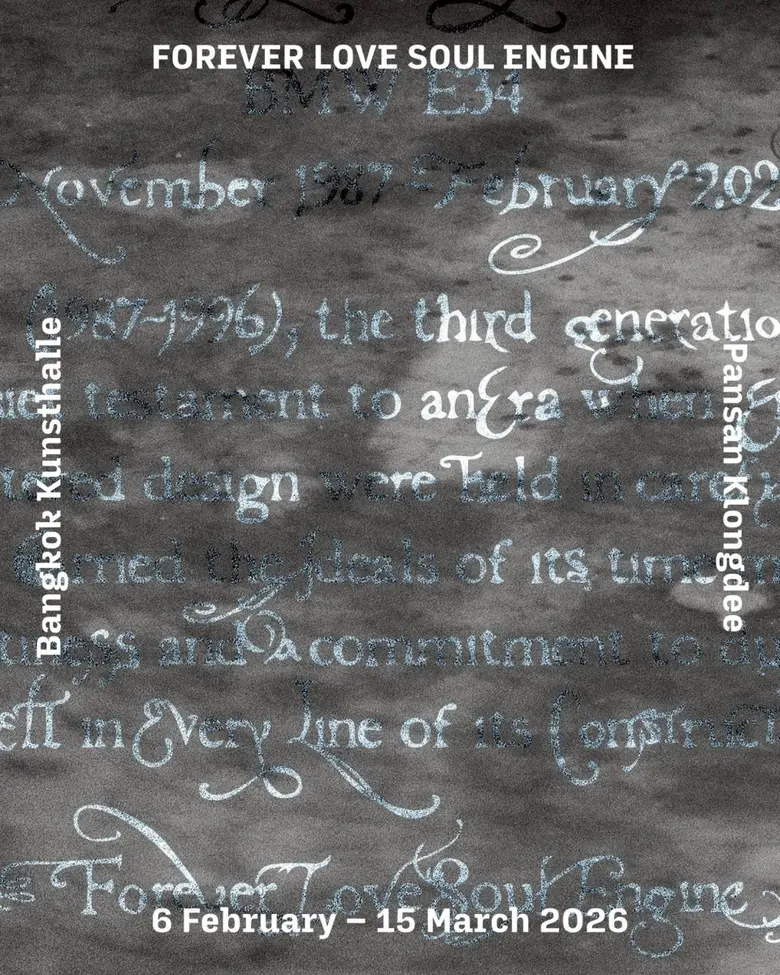 FOREVER LOVE SOUL ENGINE
BMW E34
November 1987 - February 202
(1987-1996), the third generatio
testament to an Era when
design were held in
the Ideals of its time
and a commitment to
in Every Line of its Construct
Forever Love Soul Engine
Bangkok Kunsthalle
Pansan Klongdee
6 February – 15 March 2026